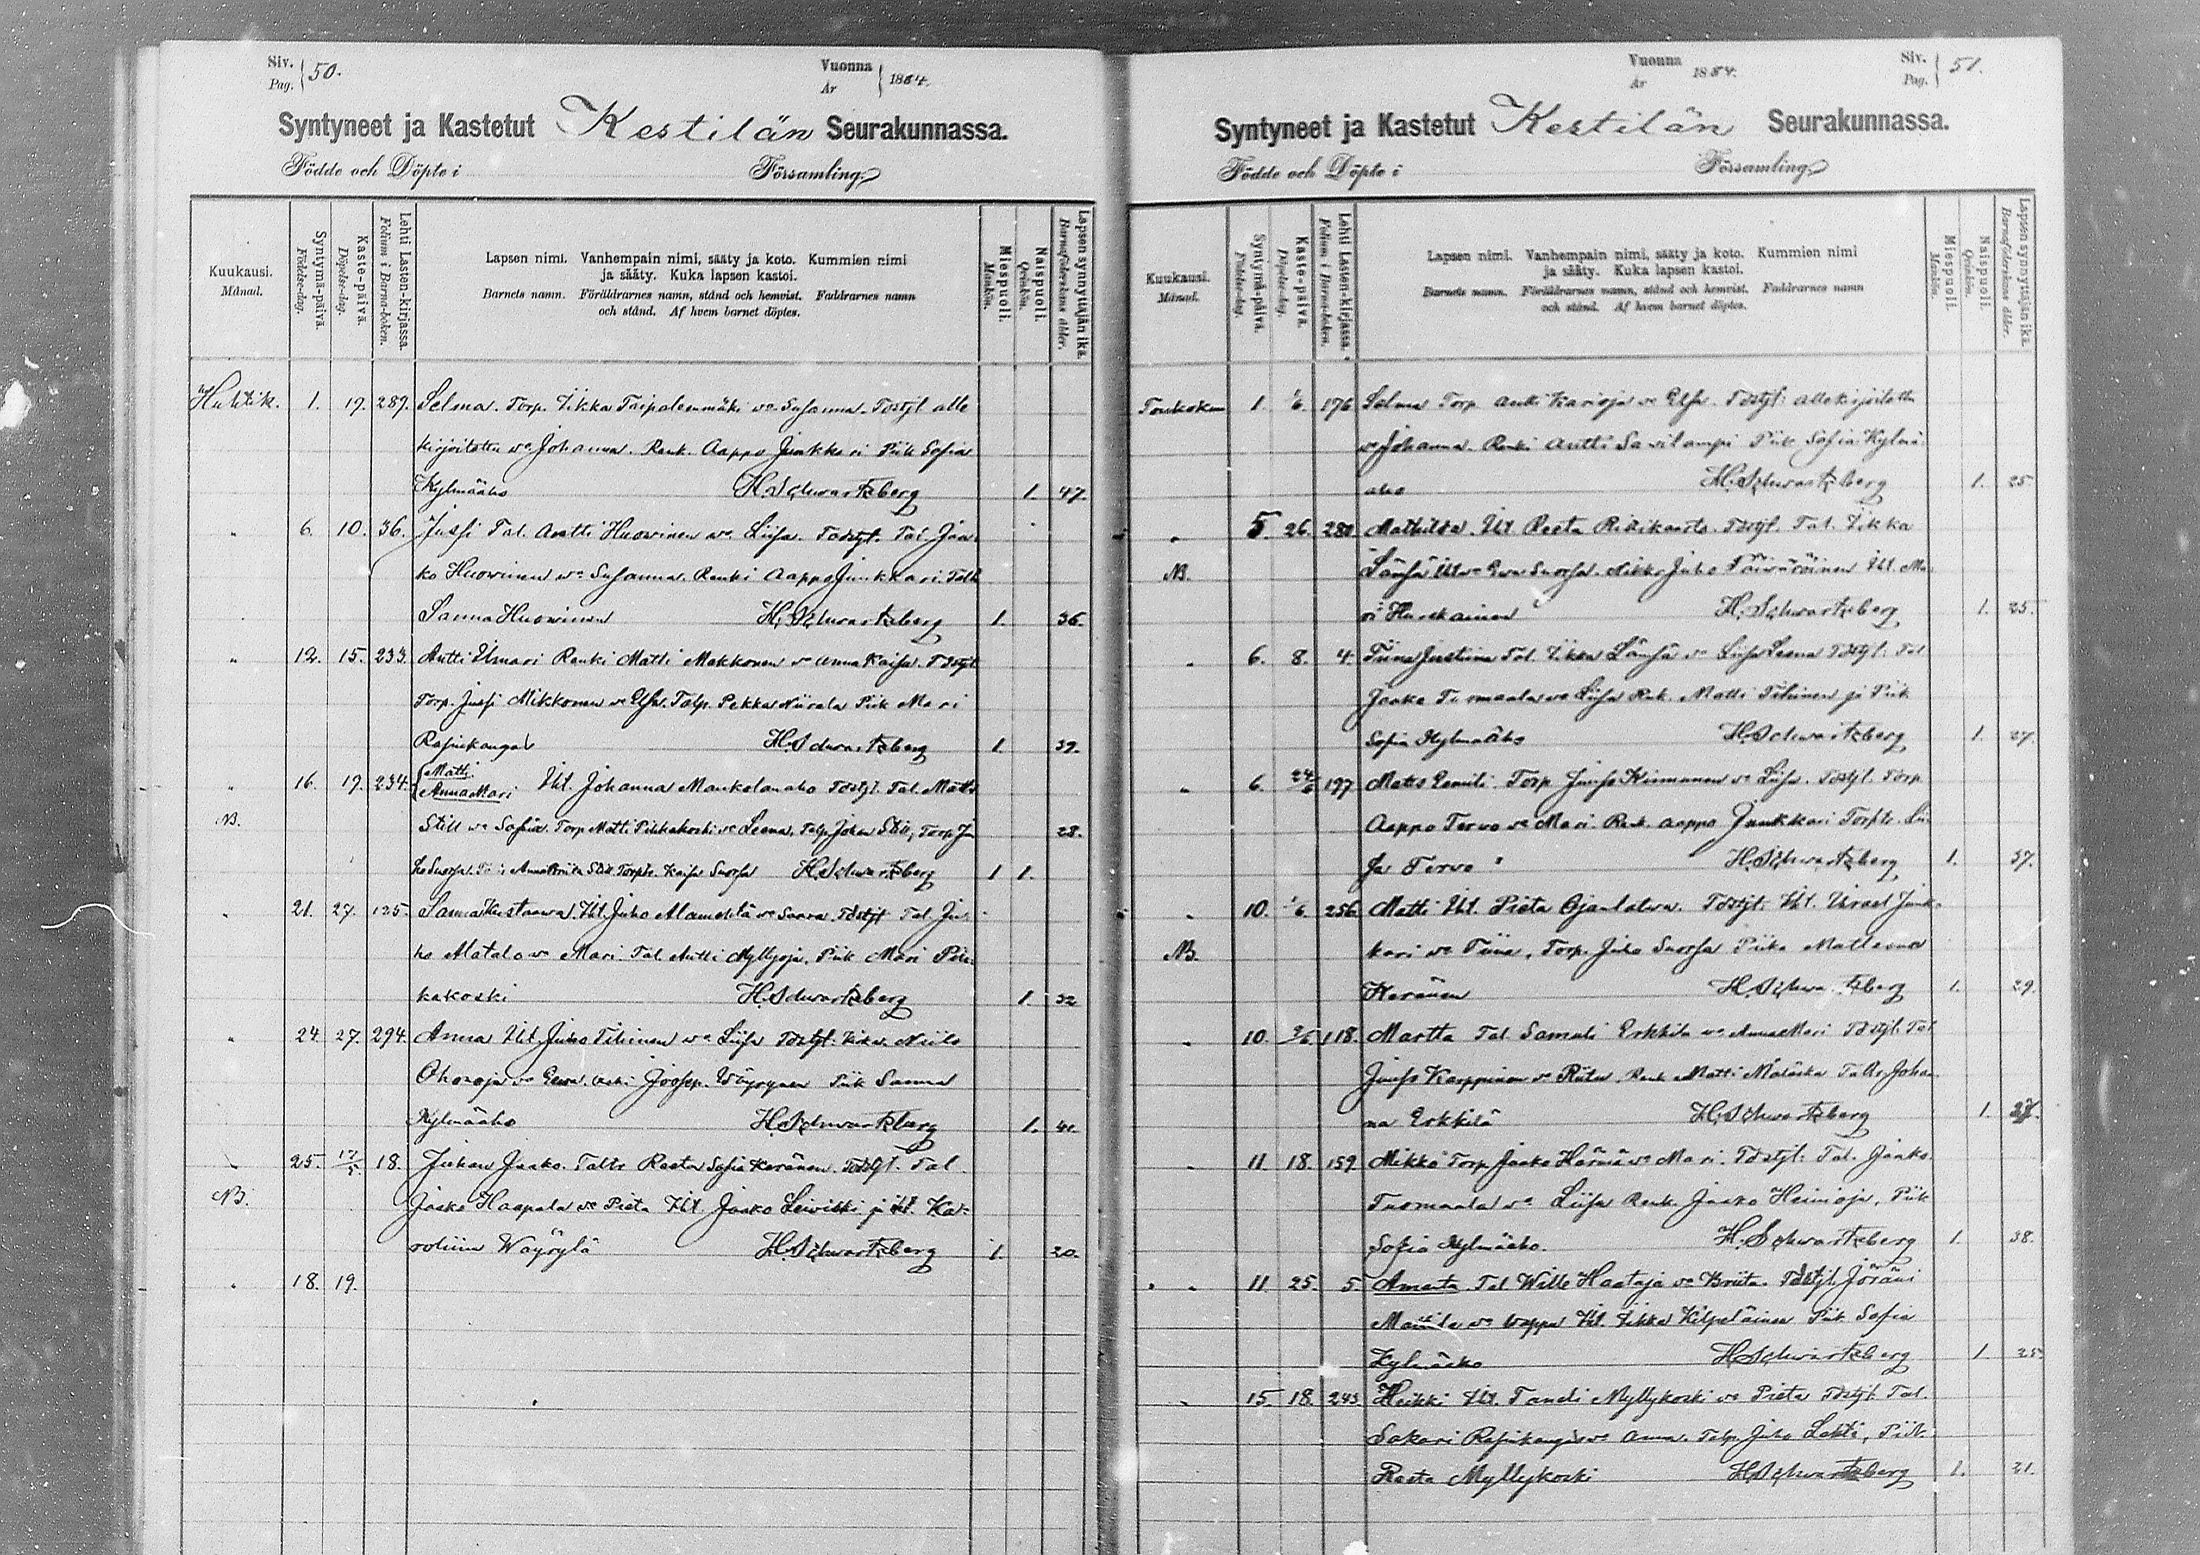 Siv. Pag. 50.
Vuonna År 1884.
Syntyneet ja Kastetut Kestilän Seurakunnassa.
Födde och Döpte i Församling.
Kuukausi. Månad.
Syntymä-päivä. Födelse-dag.
Kaste-päivä. Döpelse-dag.
Lehti Lasten-kirjassa. Folium i Barna-boken.
Lapsen nimi. Vanhempain nimi, sääty ja koto. Kummien nimi
ja sääty. Kuka lapsen kastoi.
Barnets namn. Föräldrarnes namn, stånd och hemvist. Faddrarnes namn
och stånd. Af hvem barnet döptes.
Miespuoli. Mankön.
Naispuoli. Qvinkön.
Lapsen synnyttäjän ikä. Barnaföderskans ålder.
Huhtik. 1. 19. 289. Selma. Torp. Iikka Taipaleenmäki wo Susanna. Todstjt alle
kirjoitettu wo Johanna. Renk. Aappo Junkkari Piik Sofia
Kylmäaho H. Schwartzberg 1. 47.
" 6. 10. 36. Jussi Tal. Antti Huowinen wo Liisa. Todstjt. Tal. Jaa
ko Huowinen wo Susanna. Renki Aappo Junkkari. Talt
Sanna Huowinen H. Schwartzberg 1. 36.
" 12. 15. 233. Antti Ilmari Renki Matti Mekkonen wo Anna Kaisa. Tdstjt
Torp. Jussi Mikkonen wo Elsa. Talp. Pekka Niirala Piik Mari
H. Schwartzberg 1. 39.
" 16. 19. 234. Matti
Anna Mari Itl. Johanna Mankelanaho Todstjt. Tal. Matti
NB. Still wo Sofia. Torp Matti Pihkakoski wo Leena, Talp. Johan Still, Torp Ju
ho Suorsa. Anna Briita Still Torptr. Kaisa Suorsa H. Schwartzberg 1 1. 28.
" 21. 27. 125 Sanna Kustaawa. Itl. Juho Alamehtä wo Saara. Tdstjt Tal. Ju
ho Matala wo Mari Tal. Antti Myllyoja. Piik Mari Pih
kakoski H. Schwartzberg 1. 32
" 24. 27. 294. Anna Itl. Juho Tihinen wo Liisa Todstjt. Niilo
Ohoroja wo Eewa. Piik Sanna
Kylmäaho H. Schwartzberg 1. 41.
" 25. 17/5. 18. Juhan Jaako. Taltr Reeta Sofia Keränen. Todstjt. Tal.
NB. Jaako Haapala wo Pieta Itl. Jaako Leiwiski ja Itl. Ka-
roliina Wäyrylä H. Schwartzberg 1. 20.
" 18. 19.
Vuonna År 1884.
Siv. Pag. 51.
Syntyneet ja Kastetut Kestilän Seurakunnassa.
Födde och Döpte i Församling.
Kuukausi. Månad.
Syntymä-päivä. Födelse-dag.
Kaste-päivä. Döpelse-dag.
Lehti Lasten-kirjassa. Folium i Barna-boken.
Lapsen nimi. Vanhempain nimi, sääty ja koto. Kummien nimi
ja sääty. Kuka lapsen kastoi.
Barnets namn. Föräldrarnes namn, stånd och hemvist. Faddrarnes namn
och stånd. Af hvem barnet döptes.
Miespuoli. Mankön.
Naispuoli. Qvinkön.
Lapsen synnyttäjän ikä. Barnaföderskans ålder.
Toukokuu 1. 1/6. 176 Selma Torp Antti Karioja wo Elsa. Tdstjt: allekirjoitettu
wo Johanna. Renki Antti Sawilampi Piik Sofia Kylmä
aho H. Schwartzberg 1. 25
" 5. 26. Mathilda. Itl Reeta Risikaarto. Tdstjt. Tal. Iikka
NB. Länsä Itl wo Ewa Suorsa. Mikko Juho Päiwäräinen Itl. Ma
ri Hurskainen H. Schwartzberg 1. 25.
" 6. 8. 4. Tiina Justiina Tal. Iikka Länsä wo Liisa Leena Tdstjt. Tal
Jaako Tuomaala wo Liisa Renk. Matti Tihinen ja Piik
Sofia Kylmäaho H. Schwartzberg 1. 27.
" 6. 24/6 197 Matts Eemili Torp Jussi Kinnunen wo Liisa. Tdstjt. Torp
Aappo Terwo wo Mari. Renk. Aappo Junkkari Torptr. Lii
sa Terwo H. Schwartzberg 1. 37.
" 10. 1/6. 256. Matti Itl. Pieta Ojantalwa. Tdstjt. Itl. Israel Junk-
NB. kari wo Tiina, Torp. Juho Suorsa Piika Matleena
Keränen H. Schwartzberg 1. 29.
" 10. 118. Martta Tal Samuli Erkkilä wo Anna Mari Tdstjt. Tal
Jussi Karppinen wo Riita, Renk Matti Määttä Taltr. Johan
na Erkkilä H. Schwartzberg 1. 27.
" 11 18. 159. Mikko Torp. Jaako Härmä wo Mari. Tdstjt. Tal. Jaako
Tuomaala wo Liisa Renk. Jaako Heinioja, Piik
Sofia Kylmäaho. H. Schwartzberg 1. 38.
" 11 25. 5. Amanta Tal Wille Haataja wo Briita. Tdstjt. Jöräni
Mattila wo Wappu Itl. Iikka Kilpeläinen Piik Sofia
Kylmäaho H. Schwartzberg 1 25
" 15. 18. 243. Heikki Itl. Taneli Myllykoski wo Pieta Tdstjt. Tal.
Sakari Rasinkangas wo Anna. Talp. Juho Lehto, Piik.
Reeta Myllykoski H. Schwartzberg 1. 21.